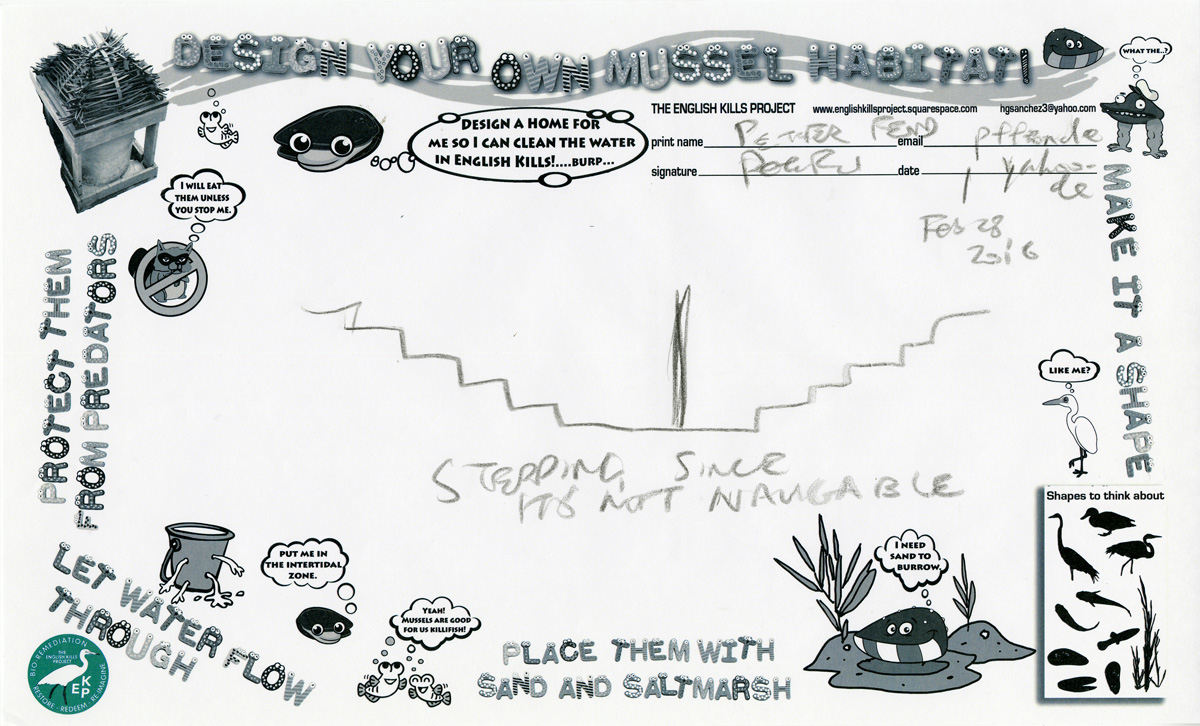 DESIGN YOUR OWN MUSSEL HABITAT!
WHAT THE..?
THE ENGLISH KILLS PROJECT www.englishkillsproject.squarespace.com hgsanchez3@yahoo.com
DESIGN A HOME FOR
ME SO I CAN CLEAN THE WATER
IN ENGLISH KILLS!....BURP...
print name PETTER FEND email
signature date
yahoo-
de
Feb 28
2016
I WILL EAT
THEM UNLESS
YOU STOP ME.
PROTECT THEM
FROM PREDATORS
MAKE IT A SHAPE
LIKE ME?
STEPPING, SINCE
ITS NOT NAVIGABLE
Shapes to think about
LET WATER FLOW
THROUGH
PUT ME IN
THE INTERTIDAL
ZONE.
YEAH!
MUSSELS ARE GOOD
FOR US KILLIFISH!
I NEED
SAND TO
BURROW.
PLACE THEM WITH
SAND AND SALTMARSH
BIO-REMEDIATION
THE ENGLISH KILLS PROJECT
EKP
RESTORE - REDEEM - REIMAGINE